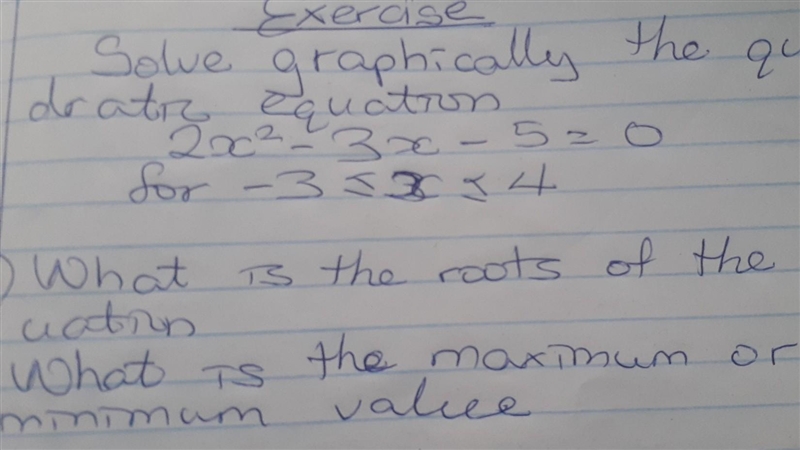 Exercise
Solve graphically the qu
dratic equation
2x² - 3x - 5 = 0
for -3 ≤ x ≤ 4
) What is the roots of the
uation
What is the maximum or
minimum value